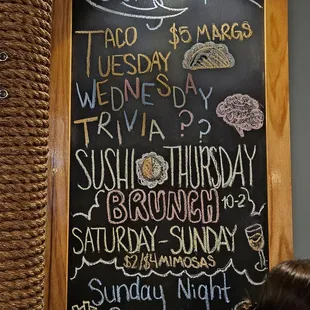 TACO $5 MARGS
TUESDAY
WEDNESDAY
TRIVIA ??
SUSHI THURSDAY
BRUNCH 10-2
SATURDAY-SUNDAY
$2/$4 MIMOSAS
Sunday Night